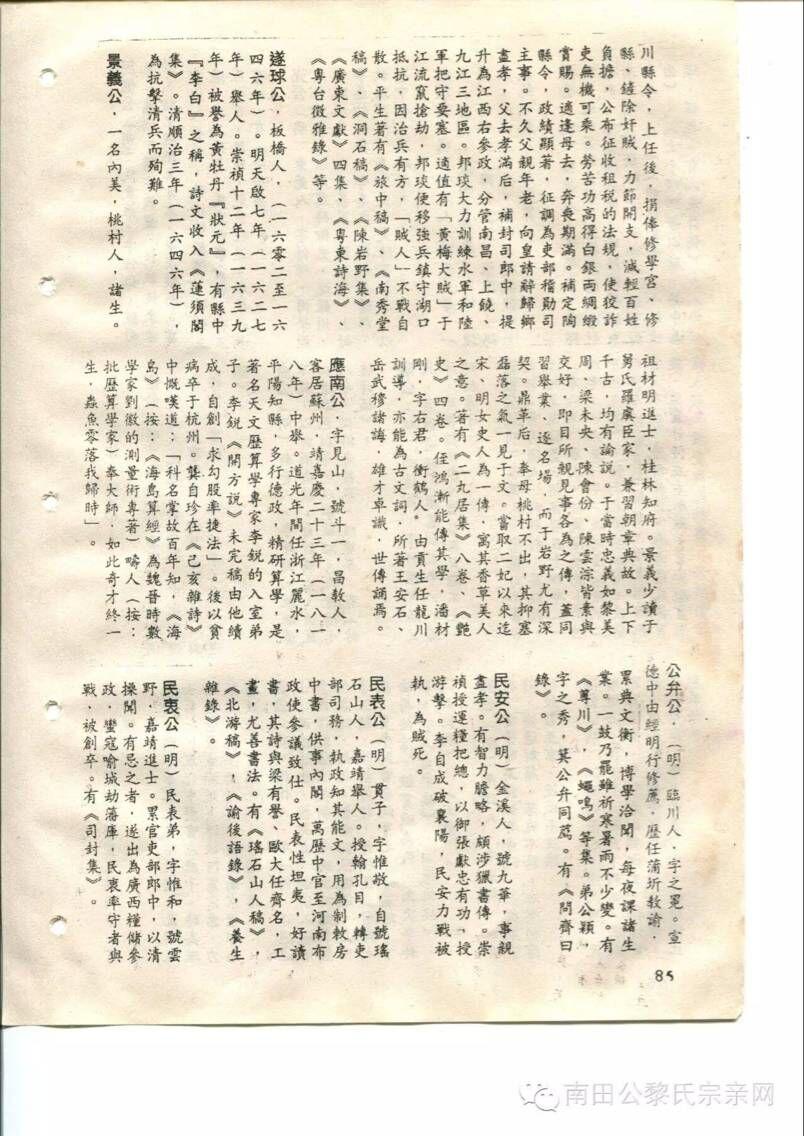 川縣令，上任後，捐俸修學宮、修
縣、鏟除奸賊，力節開支，減輕百姓
負擔，公布征收租税的法規，使狡詐
吏無機可乘。勞苦功高得白銀兩綢緞
賞賜。適逢母去，奔喪期滿。補定陶
縣令，政績顯著，征調為吏部稽勛司
主事。不久父親年老，向皇請辭歸鄉
盡孝，父去孝滿后，補封司郎中，提
升為江西右參政，分管南昌、上饒、
九江三地區。邦琰大力訓練水軍和陸
軍把守要塞。適值有「黃梅大賊」于
江流竄搶劫，邦琰便移強兵鎮守湖口
抵抗，因治兵有方，「賊人」不戰自
散。平生著有《旅中稿》、《南秀堂
稿》、《洞石稿》、《陳岩野集》、
《廣東文獻》四集、《粵東詩海》、
《粵台徵雅錄》等。
遂球公，板橋人，（一六零二至一六
四六年）。明天啟七年（一六二七
年）舉人。崇禎十二年（一六三九
年）被譽為黃牡丹『狀元』，有縣中
『李白』之稱，詩文收入《蓮須閣
集》。清順治三年（一六四六年），
為抗擊清兵而殉難。
景義公，一名內美，桃村人，諸生。
祖材明進士，桂林知府。景義少讀于
舅氏羅虞臣家，兼習朝章典故。上下
千古，均有論說。于當時忠義如黎美
周、梁未央、陳會份、陳雲淙皆素與
交好，即目所親見事各為之傳，蓋同
習舉業、逐名場，而于岩野尤有深
契。鼎革后，奉母桃村不出，其抑塞
磊落之氣一見于文。嘗取二妃以來迄
宋、明女史人為一傳，寓其香草美人
之意。著有《二九居集》八卷、《艷
史》四卷。侄鴻漸能傳其學，潘材
剛，字右君，衝鶴人。由貢生任龍川
訓導，亦能為古文詞，所著王安石、
岳武穆諸論，雄才卓識，世傳誦焉。
應南公，字見山，號斗一，昌教人，
客居蘇州，靖嘉慶二十三年（一八一
八年）中舉。道光年間任浙江麗水，
平陽知縣，多行德政，精研算學，是
著名天文歷算學專家李銳的入室弟
子。李銳《開方說》未完稿由他續
成，自創「求勾股率捷法」。後以貧
病卒于杭州。龔自珍在《己亥雜詩》
中慨嘆道：「科名掌故百年知，《海
島》（按：《海島算經》為魏晉時數
學家劉徽的測量術專著）疇人（按：
批歷算學家）奉大師，如此奇才終一
生，蟲魚零落我歸時」。
公弁公，（明）臨川人，字之冕。宣
德中由經明行修薦，歷任蒲圻教諭，
累典文衡，博學洽聞，每夜課諸生
業。一鼓乃罷雖祈寒暑雨不少變。有
《尊川》，《蠅鳴》等集。弟公穎，
字之秀，冀公弁同荔。有《問齊曰
錄》。
民安公（明），金溪人，號九華，事親
盡孝。有智力膽略，頗涉獵書傳。崇
禎授運糧把總，以御張獻忠有功，授
游擊。李自成破襄陽，民安力戰被
執，為賊死。
民表公（明）貫子，字惟敬，自號瑤
石山人，嘉靖舉人。授翰孔目，轉吏
部司務，執政知其能文，用為制敕房
中書，供事內閣，萬歷中官至河南布
政使參議致仕。民表性坦夷，好讀
書，其詩與梁有譽、歐大任齊名，工
畫，尤善書法。有《瑤石山人稿》，
《北游稿》，《諭後語錄》，《養生
雜錄》。
民衷公（明）民表弟，字惟和，號雲
野，嘉靖進士。累官吏部郎中，以清
操聞。有忌之者，遂出為廣西糧儲參
政，蠻寇喻城劫藩庫，民衷率守者與
戰，被創卒。有《司封集》。
85
南田公黎氏宗亲网